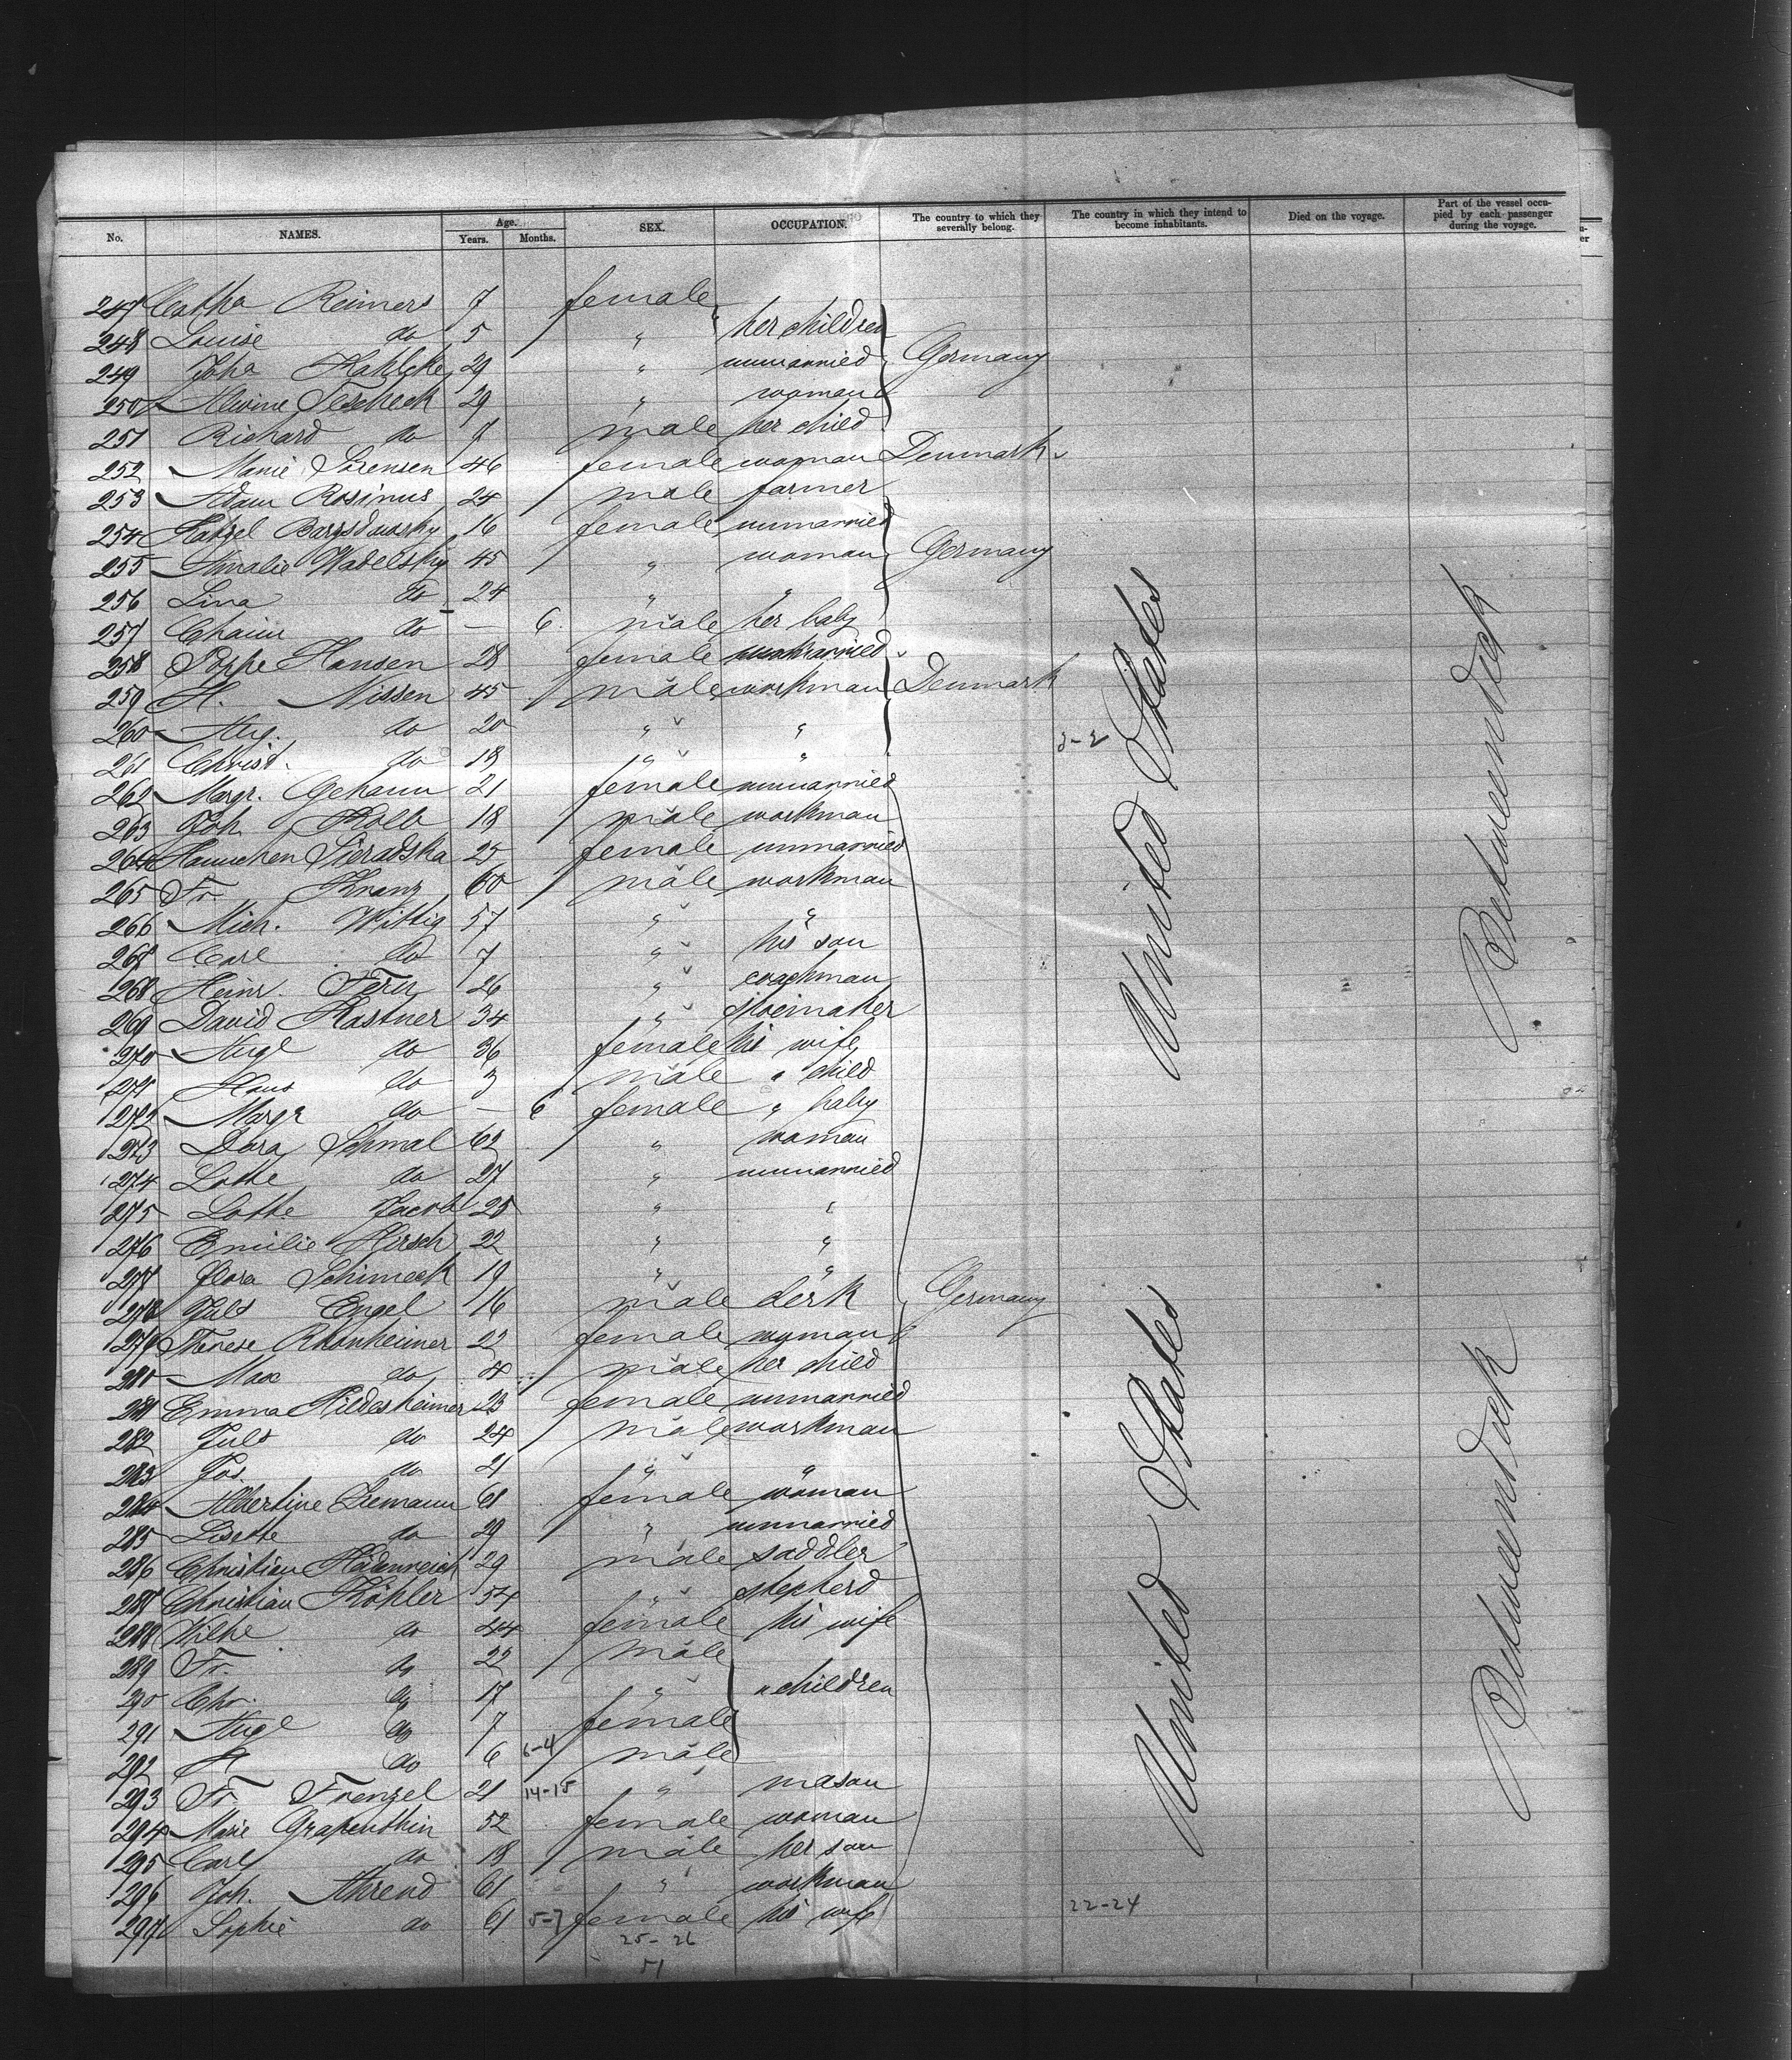 No. NAMES. Age. Years. Months. SEX. OCCUPATION. The country to which they severally belong. The country in which they intend to become inhabitants. Died on the voyage. Part of the vessel occupied by each passenger during the voyage.
247 Catha Reimers 7 female
248 Louise do 5 " her children
249 Joha Kahlcke 29 " unmarried Germany
250 Alwine Tescheck 29 " woman
251 Richard do 7 male her child
252 Marie Sörensen 46 female woman Denmark
253 Adam Rosinus 24 male farmer
254 16 female unmarried
255 Amalie Wadelsky 45 " woman Germany
256 Lina do 24 " "
257 Chaim do — 6 male her baby
258 Poppe Hansen 28 female unmarried
259 H. Nissen 45 male workman Denmark
260 do 20 " "
261 Christ. do 18 " "
262 Margr. Gehann 21 female unmarried
263 Joh. Kolb 18 male workman
264 Hannchen Sieradska 25 female unmarried
265 Fr. Kranz 60 male workman
266 Mich. Wittig 57 " "
267 Carl do 7 " his son
268 Heinr. Fern 26 " coachman
269 David Kastner 34 " shoemaker
270 Auge do 36 female his wife
271 Hans do 3 male " child
272 Margr do — 6 female " baby
273 Dora Schmal 62 " woman
274 Lotte do 27 " unmarried
275 Lotte Jacob 25 " "
276 Emilie Hirsch 22 " "
277 Flora Schimeck 19 " "
278 Juls Engel 16 male clerk Germany
279 Therese Rhonheimer 22 female woman
280 Max do 4 male her child
281 Emma Hildesheimer 23 female unmarried
282 Juls do 24 male workman
283 Jos. do 21 " "
284 Albertine Liemann 61 female woman
285 Lisette do 29 " unmarried
286 Christian Heidenreich 29 male saddler
287 Christian Köhler 54 " shepherd
288 Wilhe do 44 female his wife
289 Fr. do 22 male
290 Chr. do 17 " " children
291 Auge do 7 female
292 H do 6 6-4 male
293 Fr. Frenzel 21 14-15 " mason
294 Marie Grapenthin 52 female woman
295 Carl do 18 male her son
296 Joh. Ahrend 61 " workman
297 Sophie do 61 5-7 female his wife
25-26
51
3-2
22-24
United States
United States
Betweendeck
Betweendeck